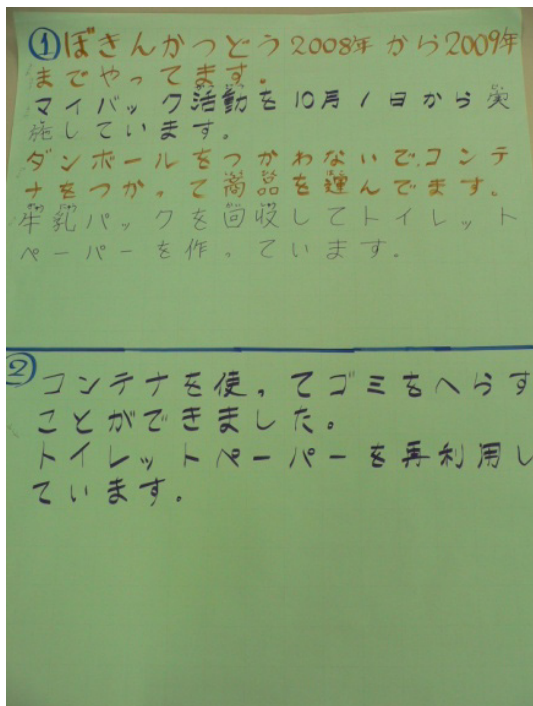 ①ぼきんかつどう2008年から2009年
までやってます。
マイバック活動を10月1日から実
施しています。
ダンボールをつかわないで、コンテ
ナをつかって商品を運んでます。
牛乳パックを回収してトイレット
ペーパーを作っています。
②コンテナを使ってゴミをへらす
ことができました。
トイレットペーパーを再利用し
ています。